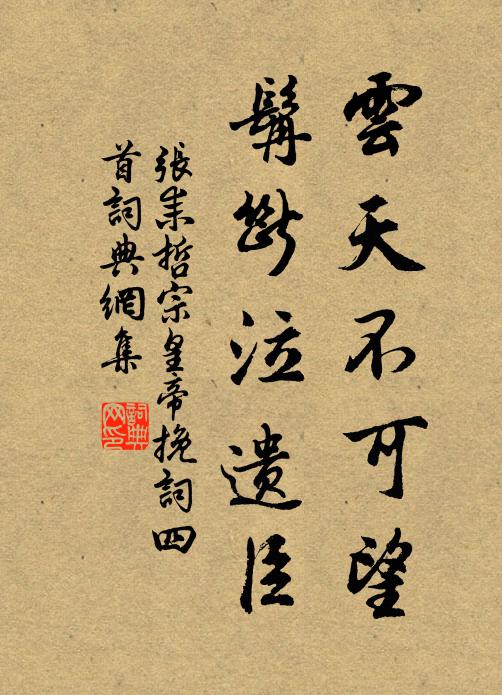 雲天不可望
髯斷泣遺臣
張耒哲宗皇帝挽詞四
首詞典網集
詞典
网印